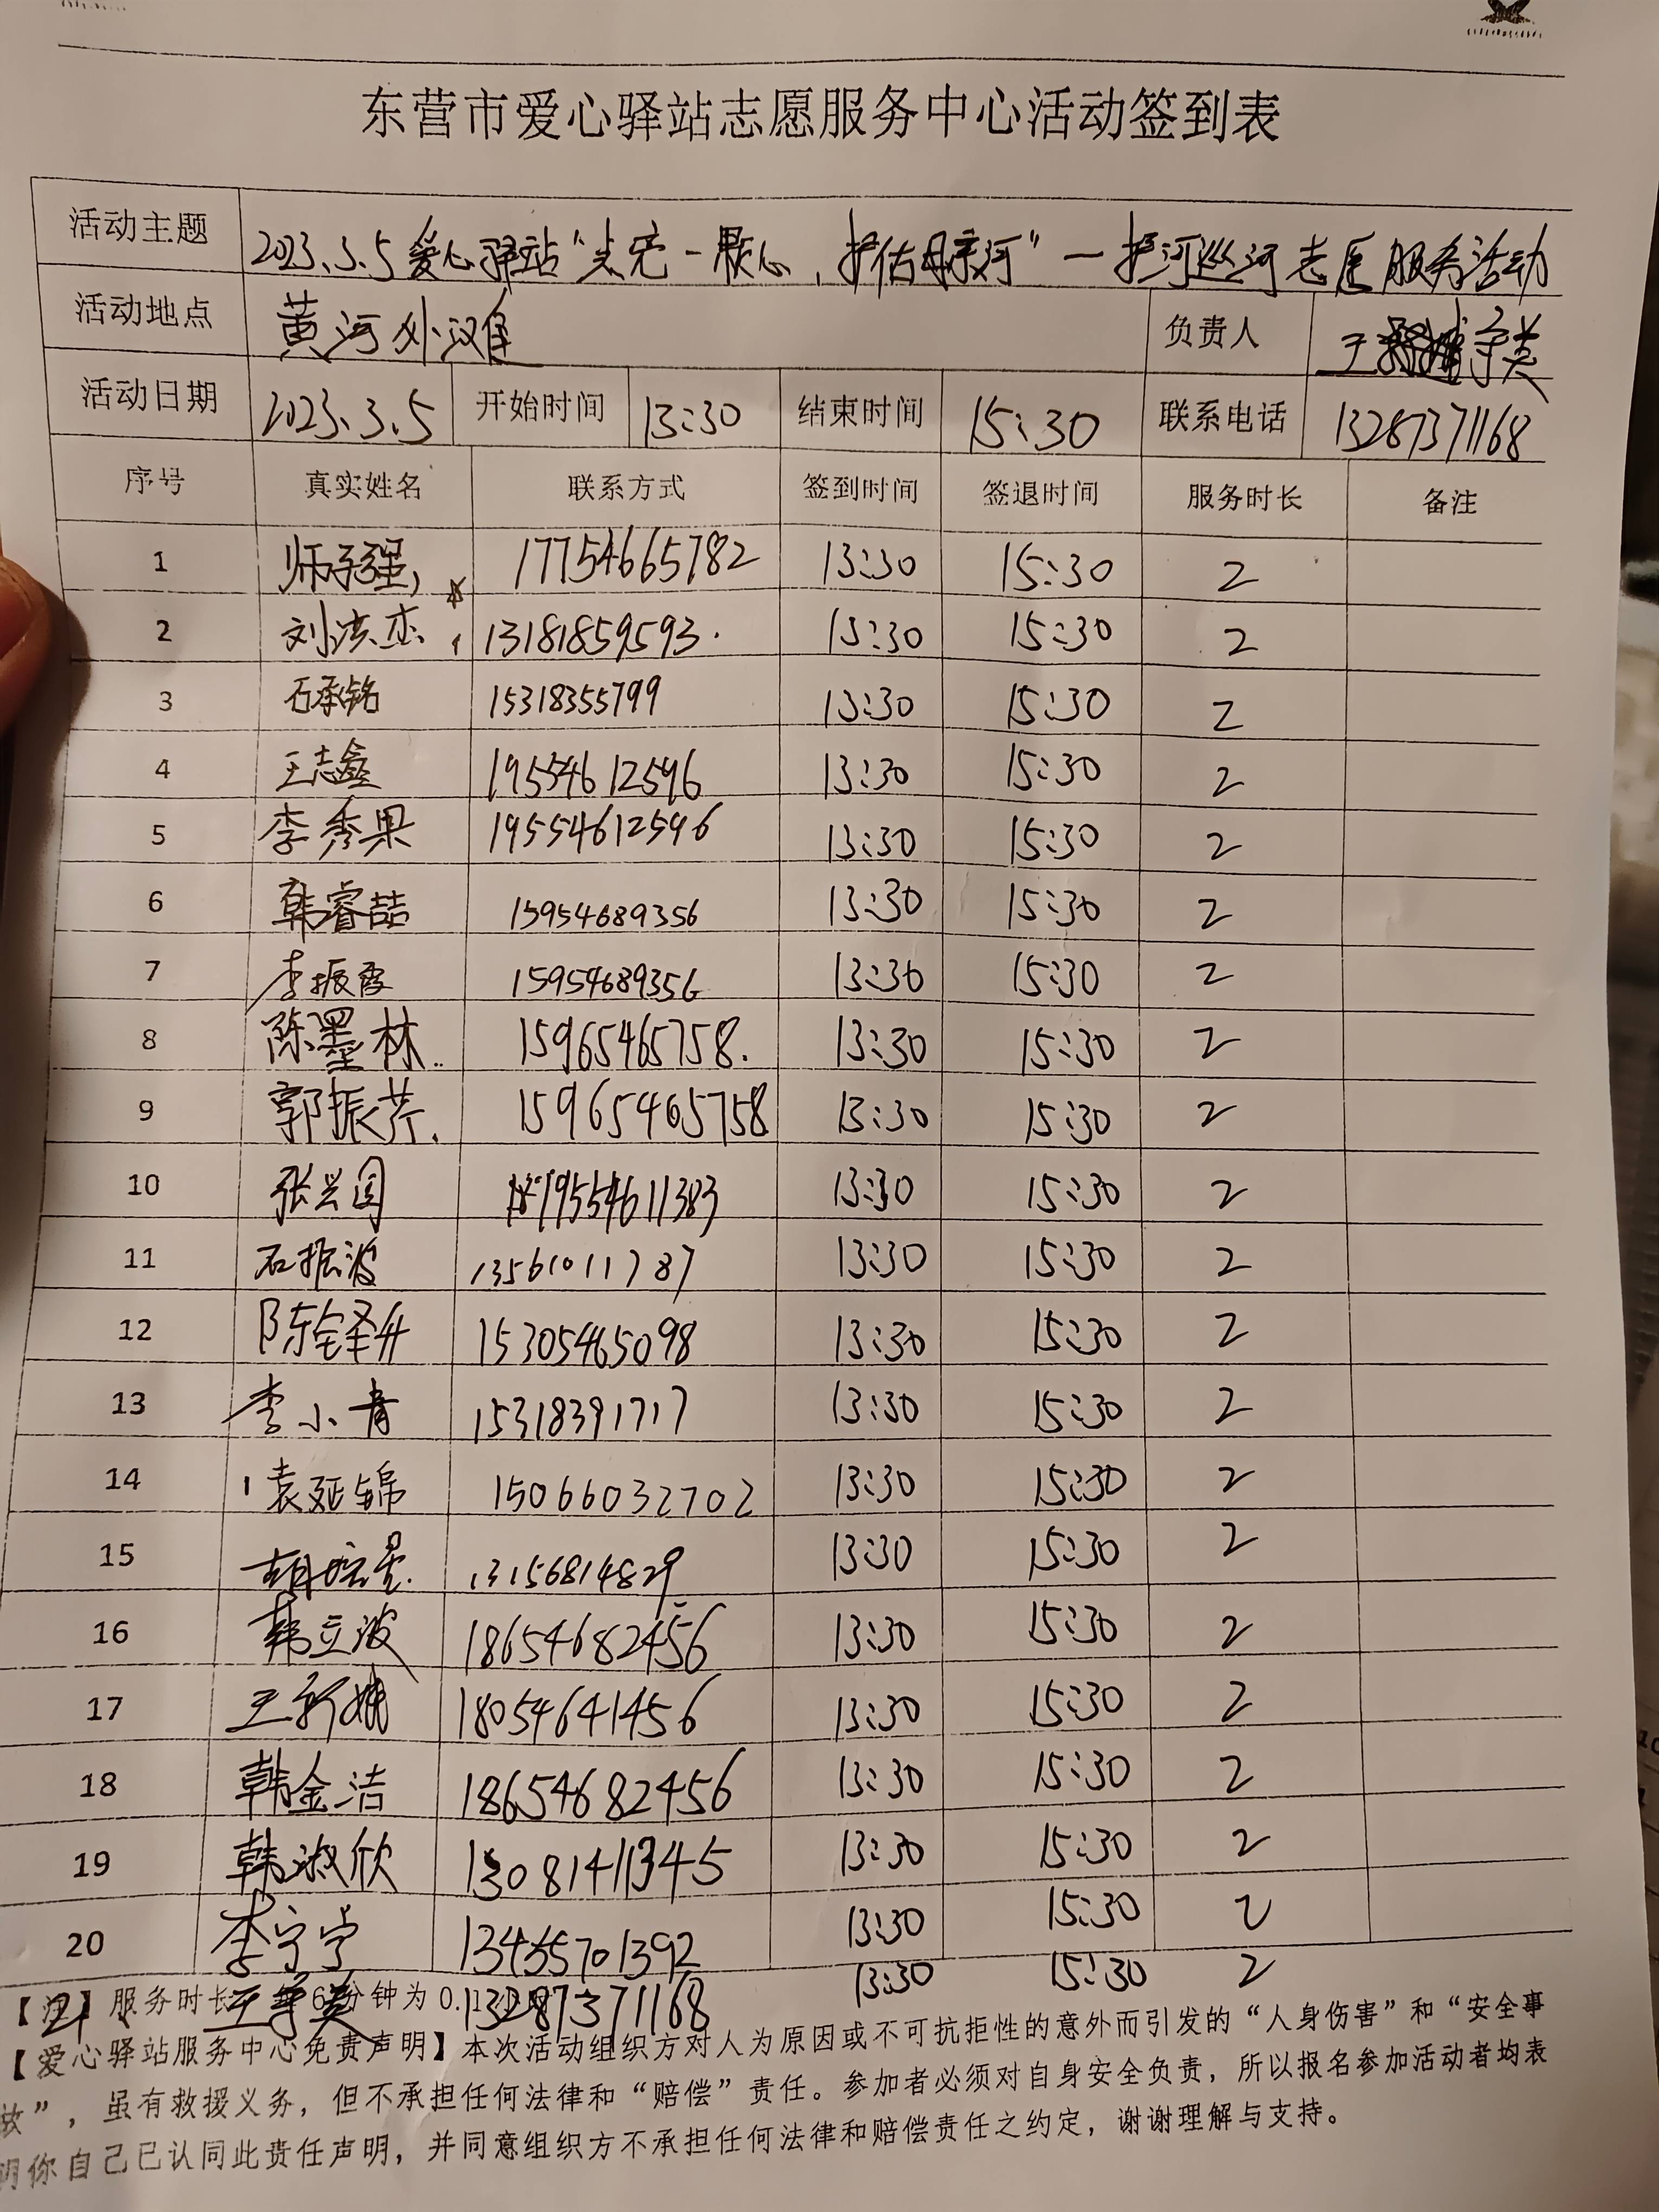 东营市爱心驿站志愿服务中心活动签到表
活动主题 2023.3.5爱心驿站“点亮一颗心,护佑母亲河”—护河巡河志愿服务活动
活动地点 黄河外滩 负责人 王守美
活动日期 2023.3.5 开始时间 13:30 结束时间 15:30 联系电话 13287371168
序号 真实姓名 联系方式 签到时间 签退时间 服务时长 备注
1 师子强, 17754665782 13:30 15:30 2
2 刘洪杰 13181859593. 13:30 15:30 2
3 石承铭 15318355799 13:30 15:30 2
4 王志鑫 19554612596 13:30 15:30 2
5 李秀果 19554612596 13:30 15:30 2
6 韩睿喆 15954689356 13:30 15:30 2
7 李振霞 15954689356 13:30 15:30 2
8 陈墨林.. 15965465758. 13:30 15:30 2
9 郭振芹. 15965465758 13:30 15:30 2
10 张兴国 19554611383 13:30 15:30 2
11 石振波 13561011787 13:30 15:30 2
12 陈铎升 15305465098 13:30 15:30 2
13 李小青 15318391717 13:30 15:30 2
14 袁延锦 15066032702 13:30 15:30 2
15 13156814829 13:30 15:30 2
16 韩立波 18654682456 13:30 15:30 2
17 王新娥 18054641456 13:30 15:30 2
18 韩金洁 18654682456 13:30 15:30 2
19 韩淑欣 13081411345 13:30 15:30 2
20 李宁宁 13455701392 13:30 15:30 2
21 王守美 13287371168 13:30 15:30 2
【注】服务时长 每6分钟为0.1
【爱心驿站服务中心免责声明】本次活动组织方对人为原因或不可抗拒性的意外而引发的“人身伤害”和“安全事
故”,虽有救援义务,但不承担任何法律和“赔偿”责任。参加者必须对自身安全负责,所以报名参加活动者均表
明你自己已认同此责任声明,并同意组织方不承担任何法律和赔偿责任之约定,谢谢理解与支持。